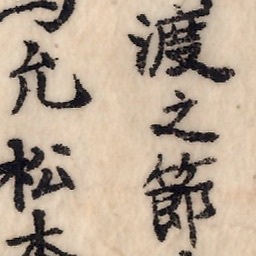 渡之節
允松本